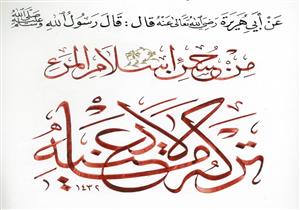 عَنْ أَبِي هُرَيْرَةَ رضي الله تعالى عنه قَالَ : قَالَ رَسُولُ اللهِ ﷺ
مِنْ حُسْنِ إِسْلَامِ الْمَرْءِ
تَرْكُهُ مَا لَا يَعْنِيهِ
١٤٣٢